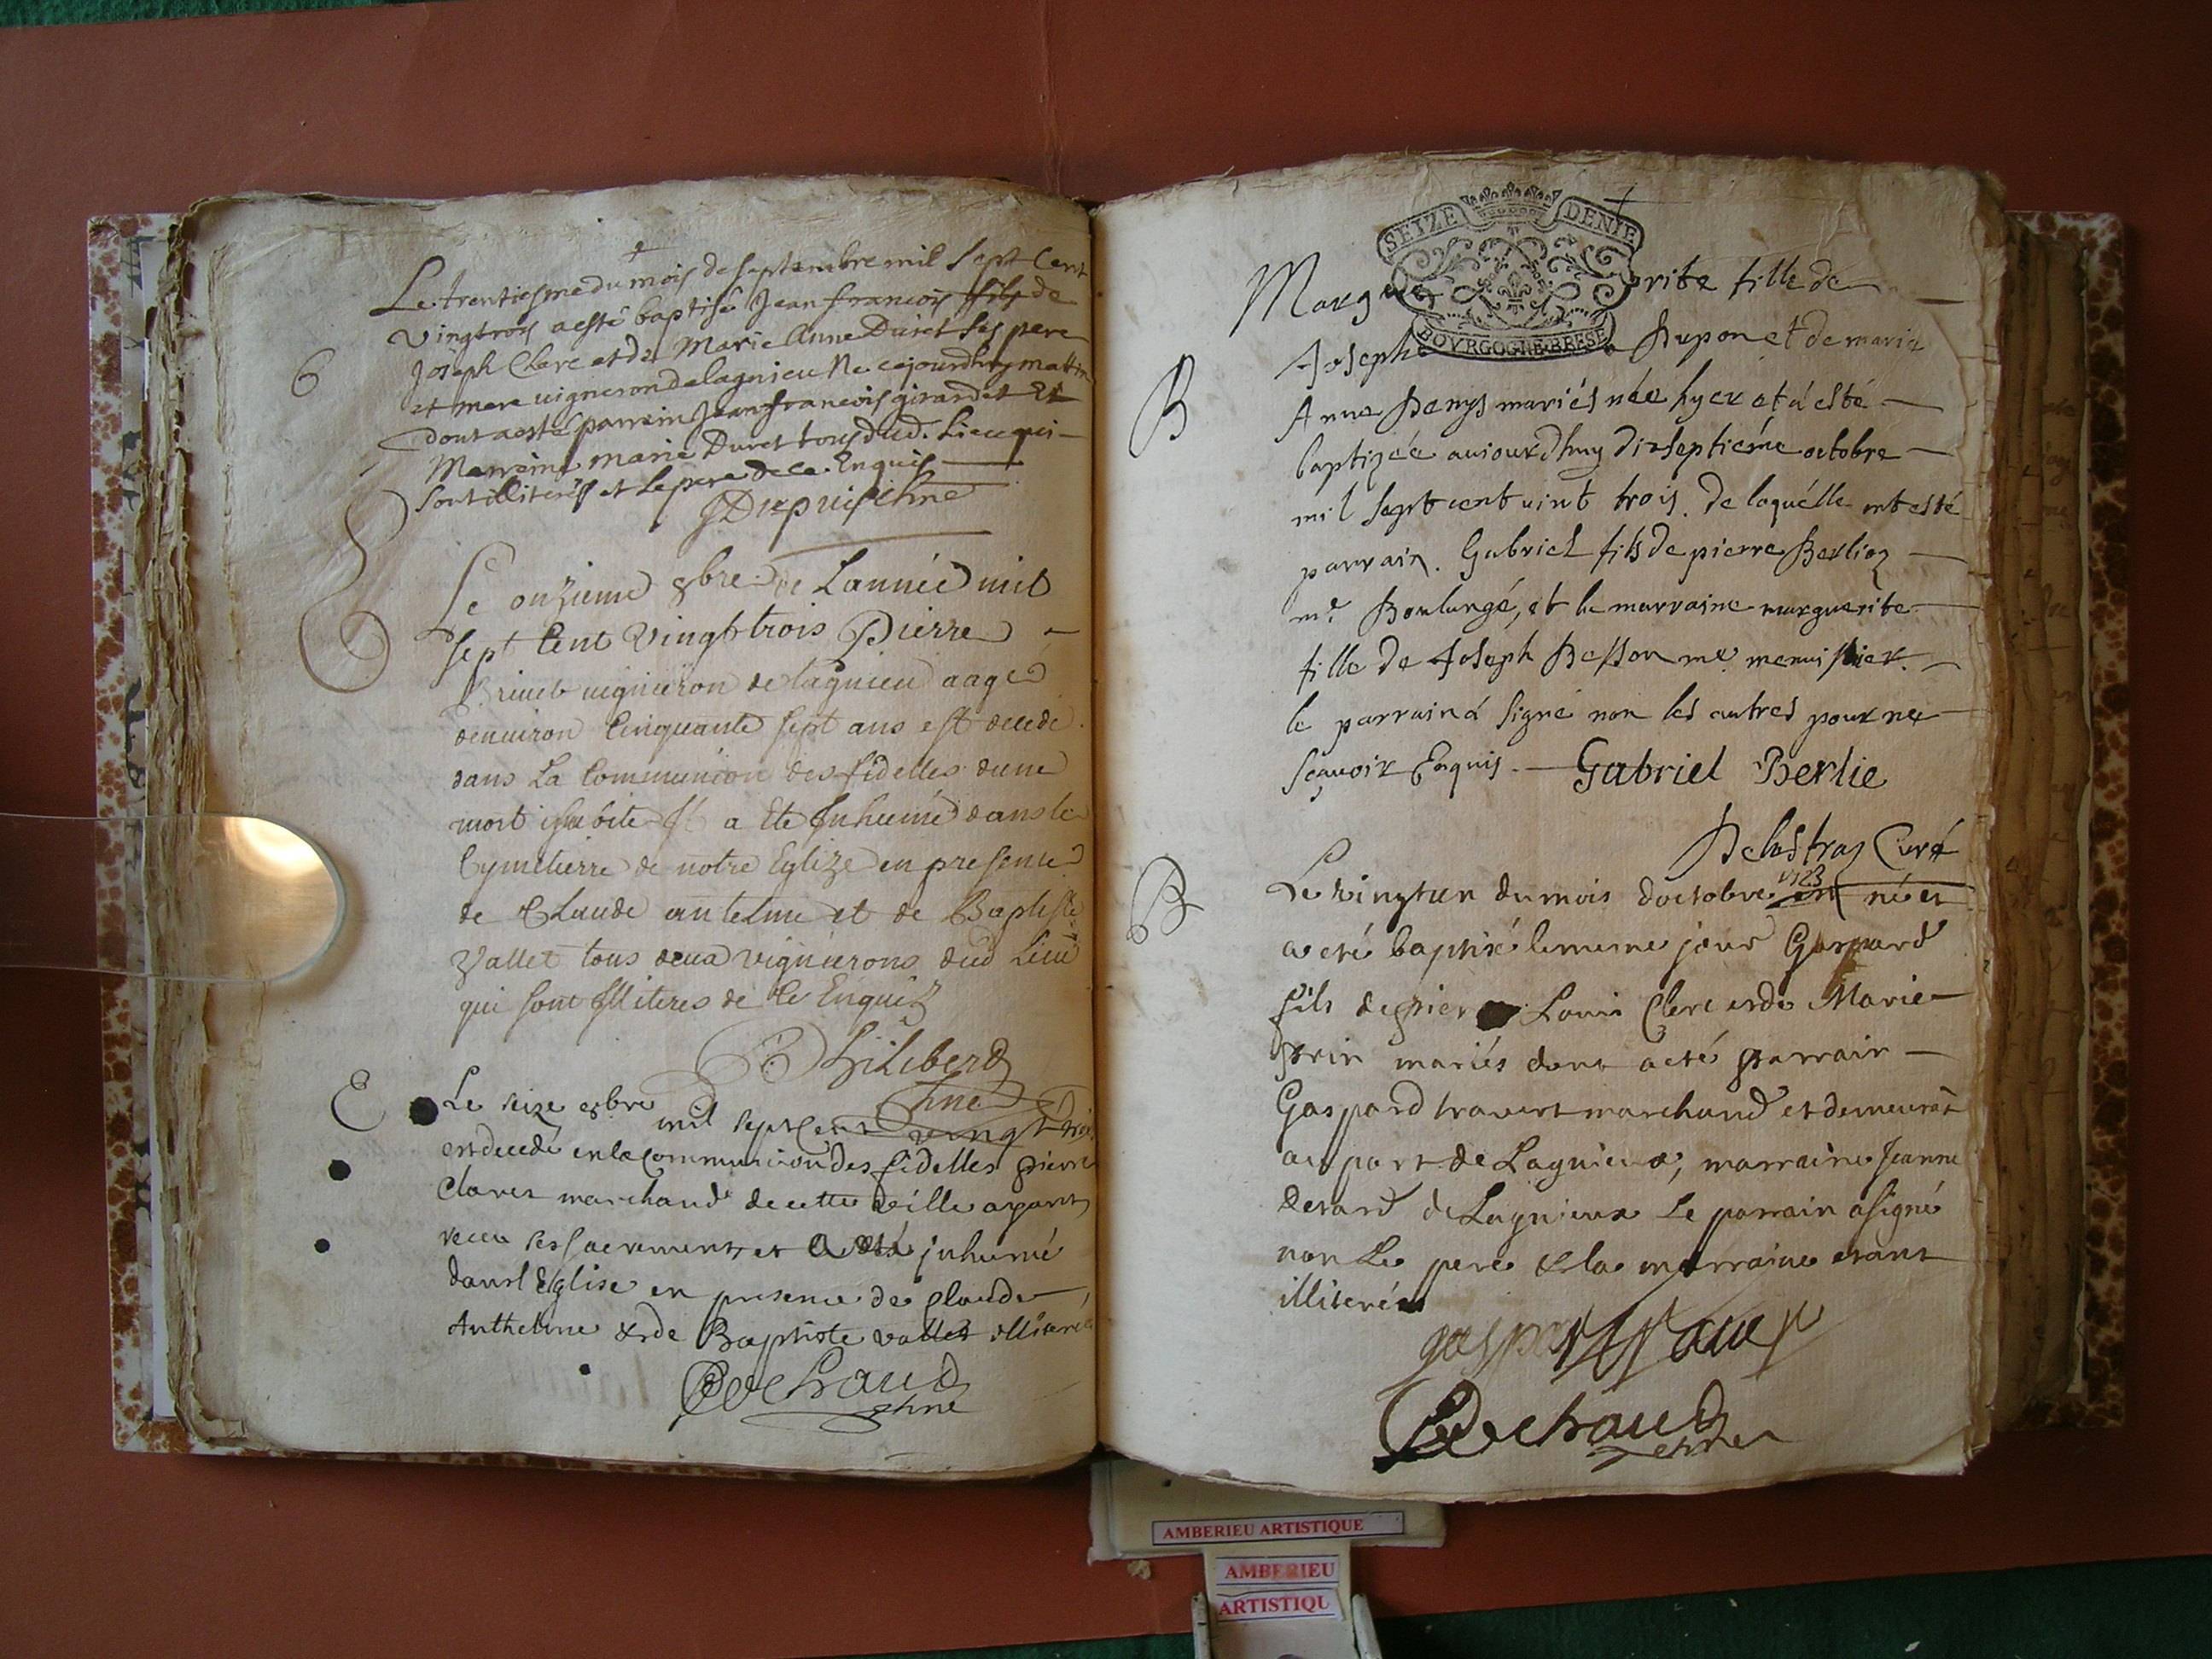 Le trentiesme du mois de septembre mil sept cent
vingtrois a esté baptisé Jean francois fils de
Joseph Clerc et de Marie Anne Duret ses pere
et mere vigneron de lagnieu Ne cejourdhuy mattin
dont a esté parrein Jean francois girardet Et
Marreine marie Duret tous dud. Lieu qui
sont illiterés et le pere de ce Enquis
Dupuis
Le onzieme 8bre de Lannée mil
sept Cent Vingt trois Pierre
vigneron de lagnieu aagé
denviron Cinquante sept ans est decede
dans La Communion des fidelles dune
mort subite Il a Ete Inhumé dans le
Cymetierre de notre Eglize en presence
de Claude antelme et de Baptiste
Vallet tous deux vignierons dud Lieu
qui sont Illiteres de Ce Enquis
Philiberd
E
Le seize 8bre mil sept cent vingt trois
est decedé en la Communion des fidelles pierre
Claret marchand de cette ville ayant
receu ses sacrements et a été inhumé
dans l Eglise en presence de claude
Anthelme & de Baptiste vallet illiterés
Dechaud
SEIZE DENIE
BOVRGOGNE BRESE
Marguerite fille de
Joseph Dupon et de marie
B
Anne Denys mariés née hyer et a esté
baptizée aujourdhuy dixseptiéme octobre
mil sept cent vint trois. de laquélle ont esté
parrain. Gabriel fils de pierre Berlioz
me. Boulangé, et la marraine marguerite
fille de Joseph Besson me menuisier.
le parrain à signé non les autres pour ne
sçavoir Enquis. Gabriel Berlie
Delastraz Curé
B
Le vingtun du mois doctobre 1723 né et
a eté baptisé le meme jour Gaspard
fils de pierre Louis Clerc et de Marie
mariés dont a eté parrain
Gaspard travert marchand et demeurāt
au port de Lagnieux, marraine Jeanne
de Lagnieux Le parrain a signé
non Le pere & la marraine etant
illiterés
Dechaud
AMBERIEU ARTISTIQUE
AMBERIEU
ARTISTIQU